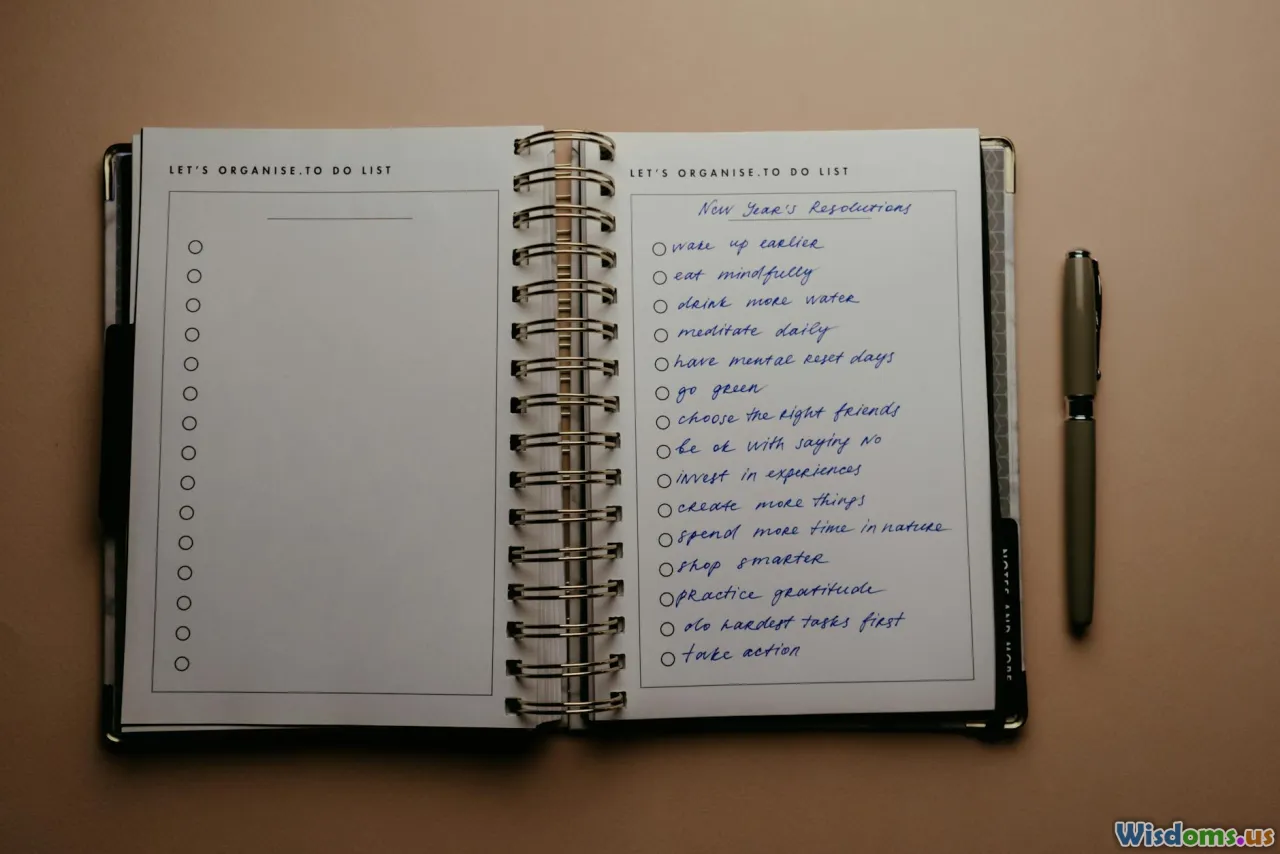 LET'S ORGANISE.TO DO LIST
LET'S ORGANISE.TO DO LIST
New Year's Resolutions
wake up earlier
eat mindfully
drink more water
meditate daily
have mental reset days
go green
choose the right friends
be ok with saying NO
invest in experiences
create more things
spend more time in nature
shop smarter
practice gratitude
do hardest tasks first
take action
NOTES AND MORE
Wisdoms.us